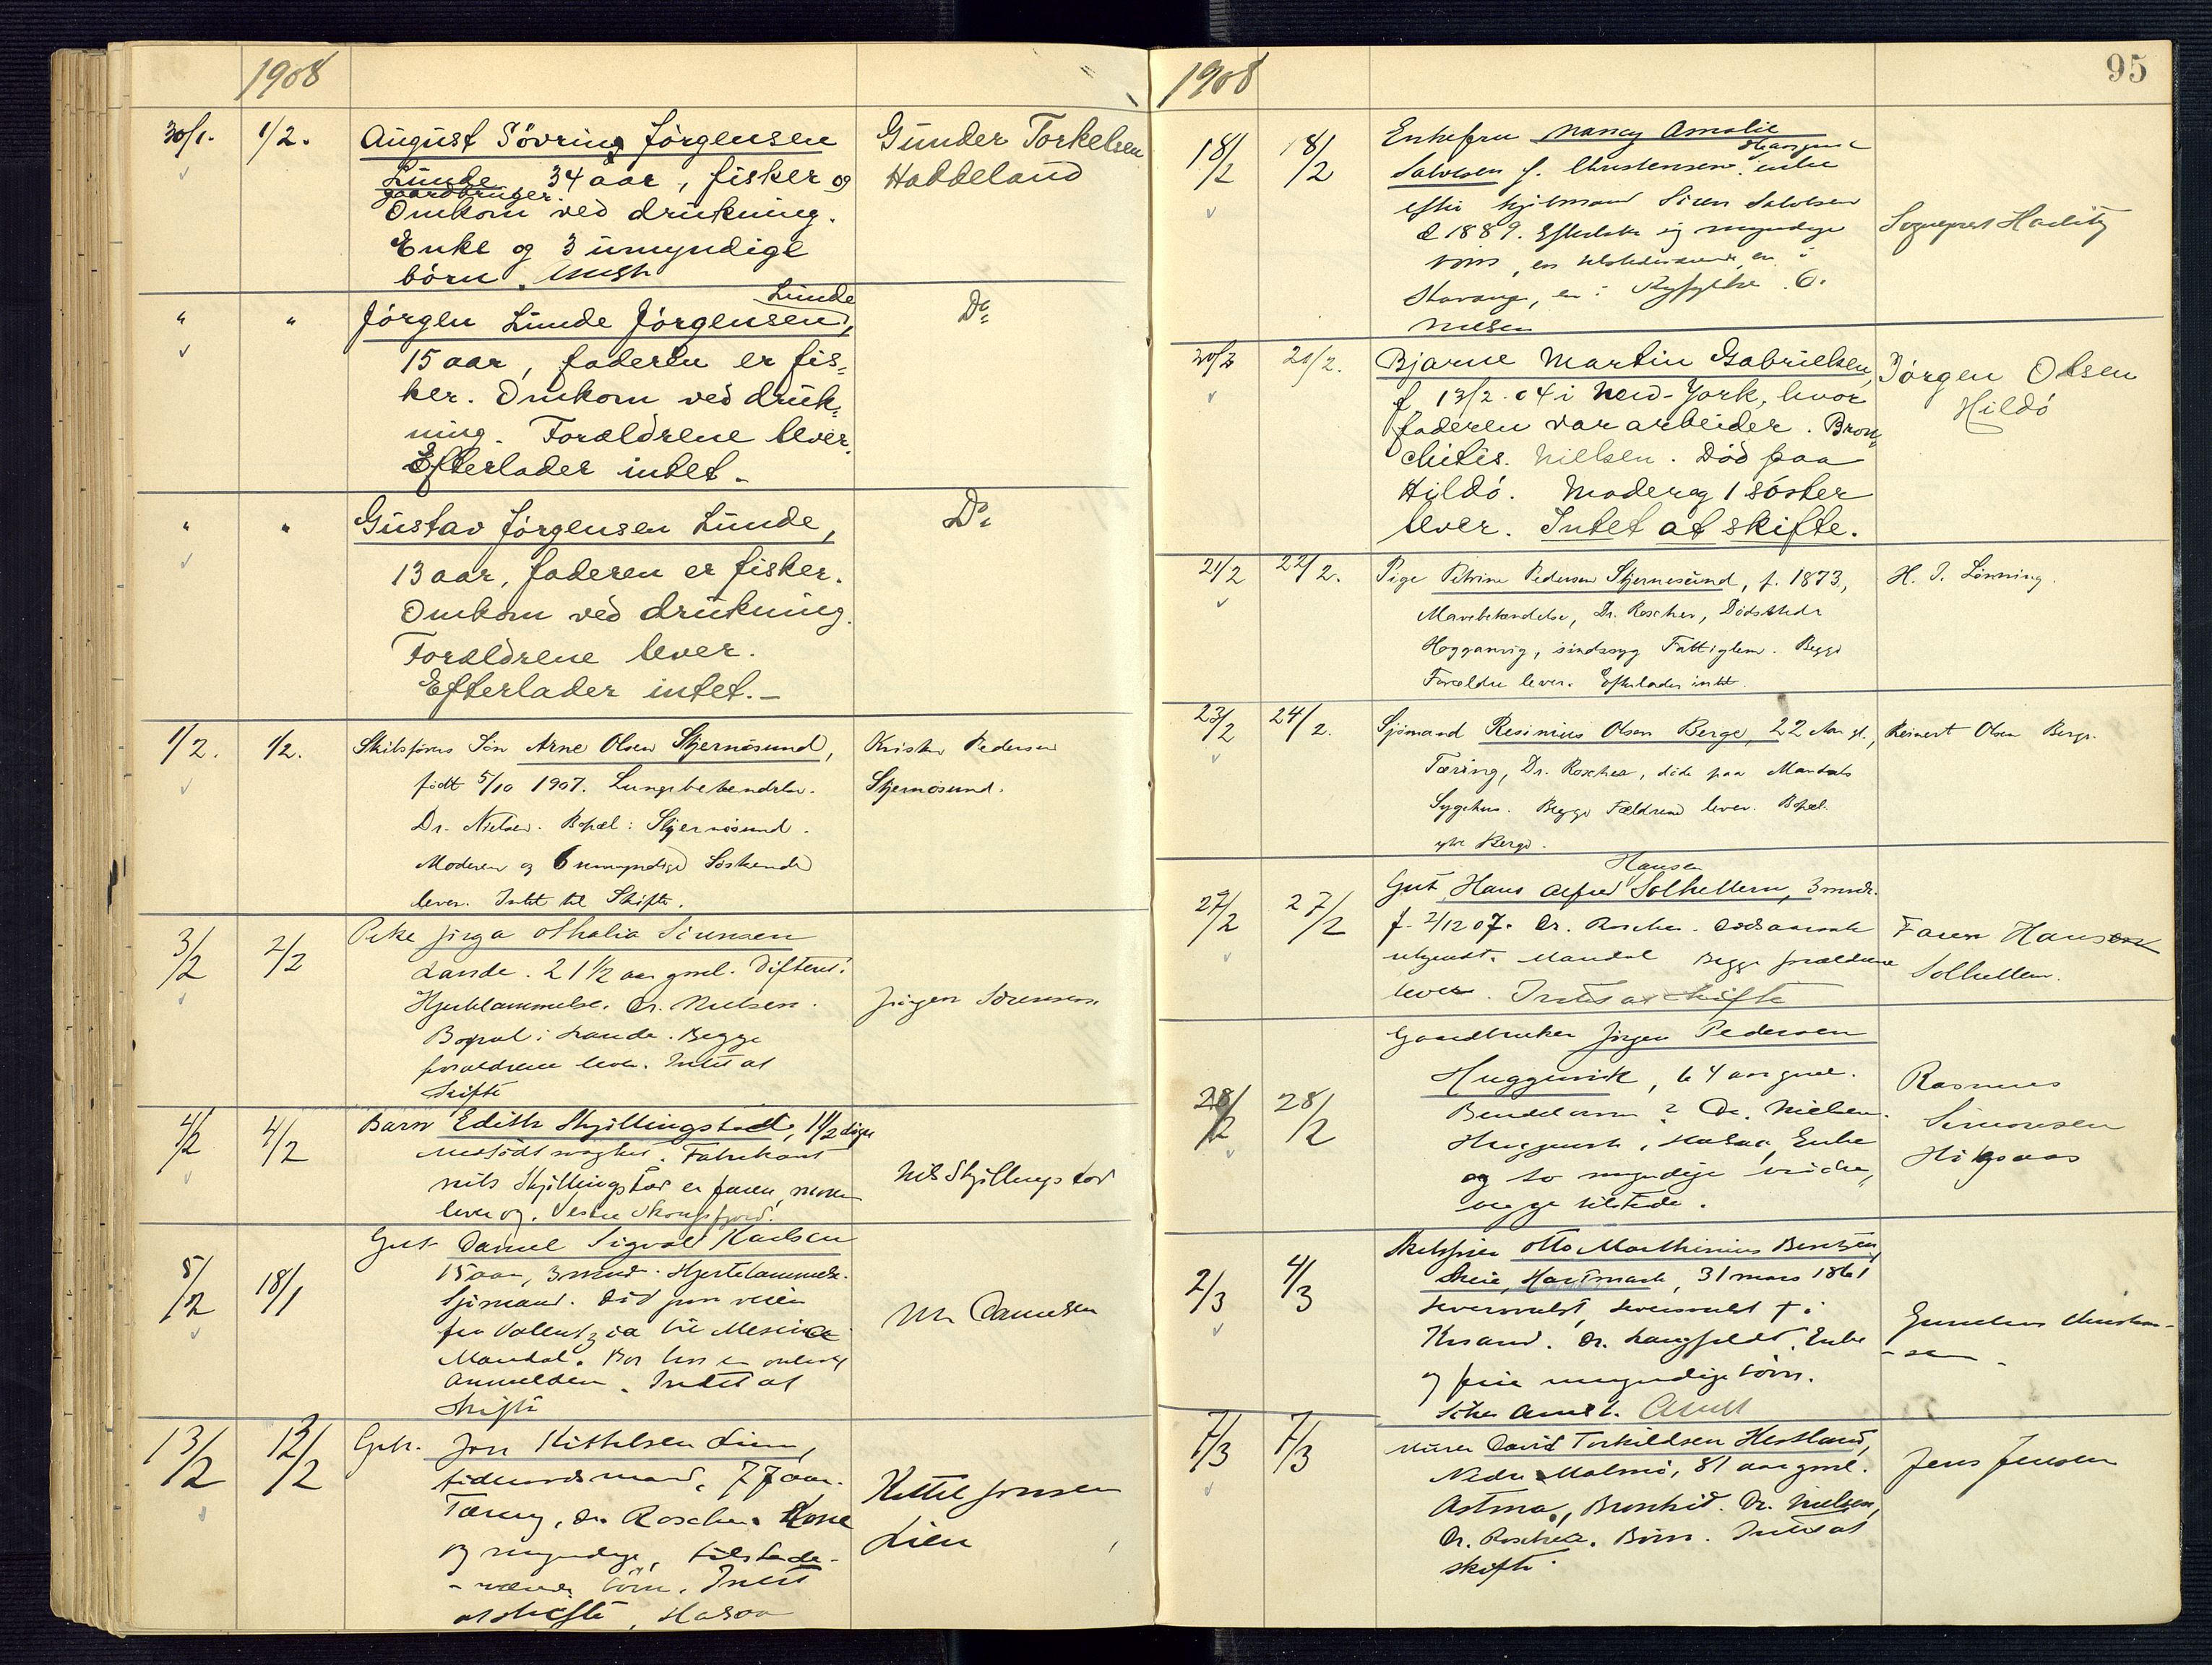 1908
30/1. 1/2. August Sövring Jörgensen Gunder Torkelsen
Lunde 34 aar, fisker og Haddeland
gaardbruger.
Omkom ved drukning.
Enke og 3 umyndige
börn.
" " Jörgen Lunde Jörgensen Lunde, Do
15 aar, faderen er fis-
ker. Omkom ved druk-
ning. Forældrene lever.
Efterlader intet.
" " Gustav Jörgensen Lunde, Do
13 aar, faderen er fisker.
Omkom ved drukning.
Forældrene lever.
Efterlader intet.-
1/2. 1/2. Skibsførers Søn Arne Olsen Skjernøsund, Krister Pedersen
født 5/10 1907. Lungebetendelse. Skjernøsund.
Dr. Nielsen. Bopæl: Skjernøsund.
Moderen og 6 umyndige Søskende
lever. Intet til Skifte.
3/2 2/2 Othalia Sørensen
Lande. 2 1/2 aar gml. Difteri.
Hjertelammelse. Dr. Nielsen. Jørgen Sørensen
Bopæl: Lande. Begge
forældrene lever. Intet at
skifte
4/2 4/2 Barn Edith Skjillingstad, 1 1/2 døgn
Medfødt svaghed. Fabrikant
Nils Skjillingstad er faren, moren Nils Skjillingstad
lever og. Vestre
5/2 18/1 Gut Daniel Sigvald Karlsen
15 aar, 3 mnd. Hjertelammelse.
Sjømand. Død paa veien M. Danielsen
fra til Messina
Mandal. Bor hos
Anmelderen. Intet at
skifte
13/2 12/2 Gbr. Jon Kittelsen Lien,
77 aar. Kittel Jonsen
Tæring, Dr. Roscher. Kone Lien
og myndige, tilstede-
-værende børn. Intet
at skifte,
1908 95
18/2 18/2 Enkefru Nancy Amalie
Salvesen f. Christensen, enke
efter Søren Salvesen Sogneprest
d 1889. Efterlader sig myndige
børn, en tilstedeværende, en i
Stavanger, en i Ryfylke. 6.
Nielsen
20/2 21/2. Bjarne Martin Gabrielsen, Jörgen Olsen
f. 13/2.04 i New-York, hvor Hildö
faderen var arbeider. Bron-
chitis. Nielsen. Död paa
Hildö. Moder og 1 söster
lever. Intet at skifte.
21/2 22/2. Pige Petrine Pedersen Skjernøsund, f. 1873, H. J. Lönning.
Mavebetændelse, Dr. Roscher, Dödsstedr
sindssyg Fattiglem. Begge
Forældre lever. Efterlader intet.
23/2 24/2. Sjømand Resinius Olsen Berge, 22 Aar gl., Reinert Olsen Berge.
Tæring, Dr. Roscher, døde paa Mandals
Sygehus. Begge Fældrene lever. Bopæl.
Berge.
27/2 27/2 Hansen
Gut Hans Alfred Solhellern, 3 mndr.
f. 2/12 07. Dr. Roscher. Dødsaarsak Faren Hansen
ukjendt. Mandal Begge forældrene Solhellern.
lever. Intet at skifte
28/2 28/2 Gaardbruker Jørgen Pedersen
64 aar gml. Rasmus
Dr. Nielsen. Simonsen
Enke
og to myndige
begge tilstede.
2/3 4/3 Skibsfører Otto Marthinius Berntsen,
31 mars 1861
† i
Krsand. Dr. Langfeldt. Enke
og fire umyndige børn.
7/3 7/3 Murer David Torkildsen Hestland, Jens Jensen
Nedre Malmø, 81 aar gml.
Astma, Bronkit. Dr. Nielsen,
Dr. Roscher. Børn. Intet at
skifte.